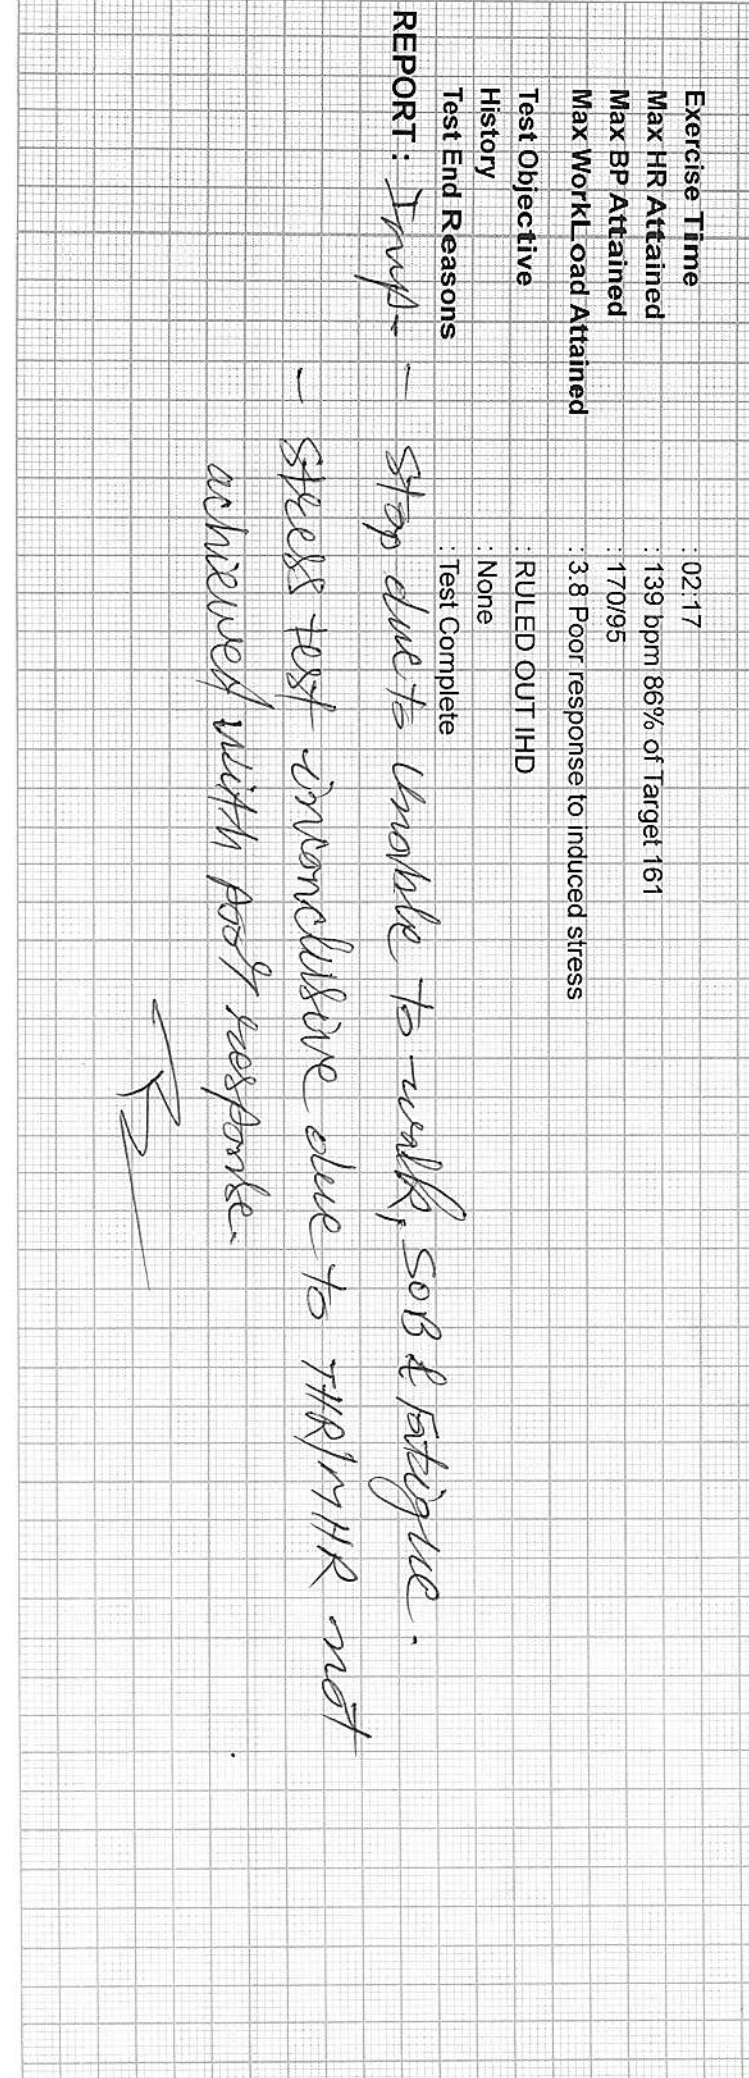 Exercise Time : 02:17
Max HR Attained : 139 bpm 86% of Target 161
Max BP Attained : 170/95
Max WorkLoad Attained : 3.8 Poor response to induced stress
Test Objective : RULED OUT IHD
History : None
Test End Reasons : Test Complete
REPORT : Imp- - Stop due to Unable to walk, SOB & Fatigue.
- Stress test inconclusive due to THR/MHR not
achieved with poor response.